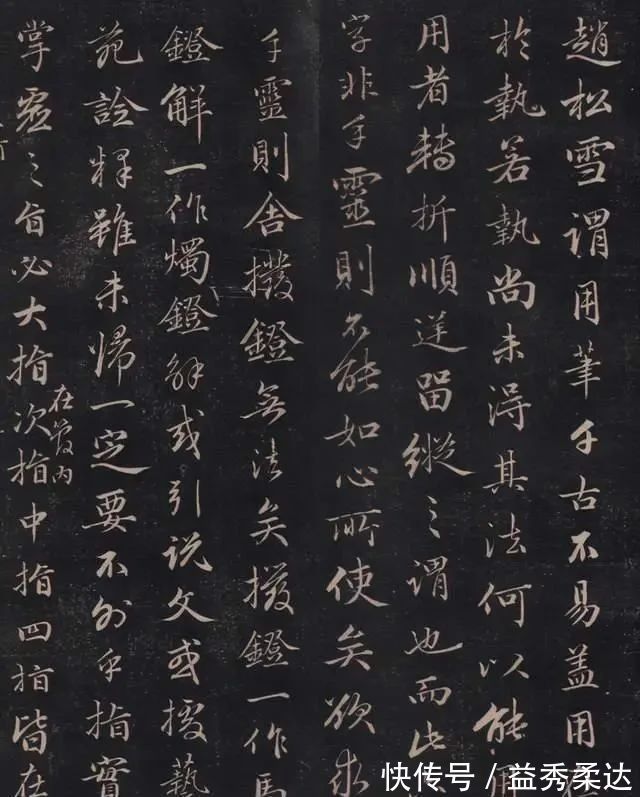 趙松雪謂用筆千古不易盖用
於執若執尚未得其法何以能用
用者轉折順逆留縱之謂也而此
字非手靈則不能如心所使矣欲求
手靈則舍撥鐙無法矣撥鐙一作馬
鐙解一作燭鐙解或引説文或援藝
苑詮釋雖未歸一定要不外乎指實
掌虛之旨必大指次指在管内中指四指皆在
快传号 / 益秀柔达